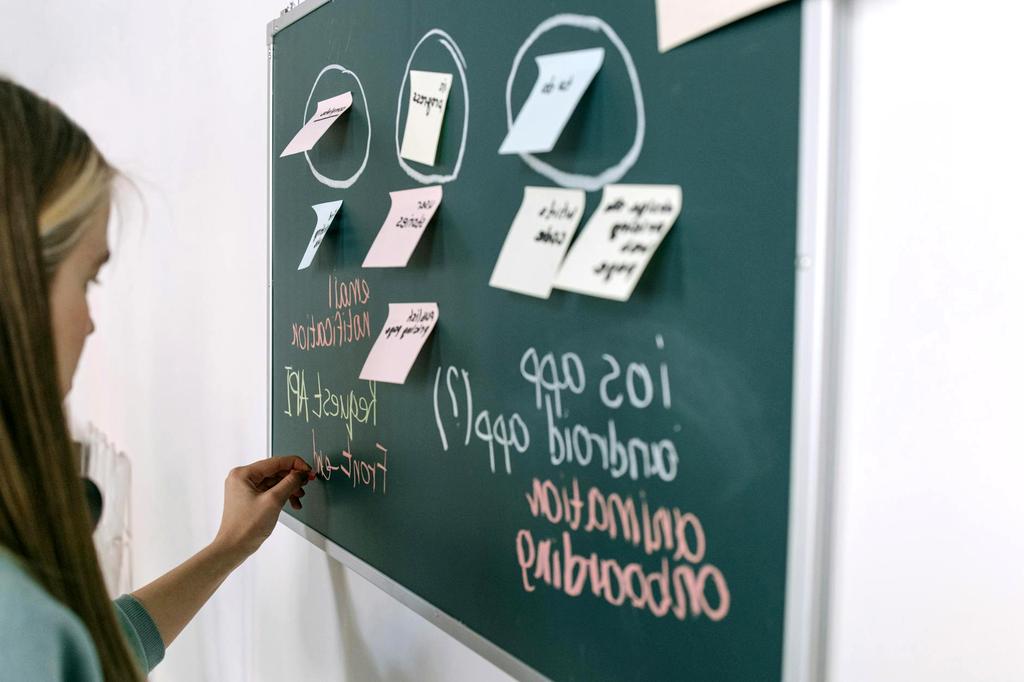 to do
pricing
new
page
write
code
ios app
android app(?)
animation
onboarding
in
progress
user
stories
publish
pricing page
email
notification
Request API
Front-end